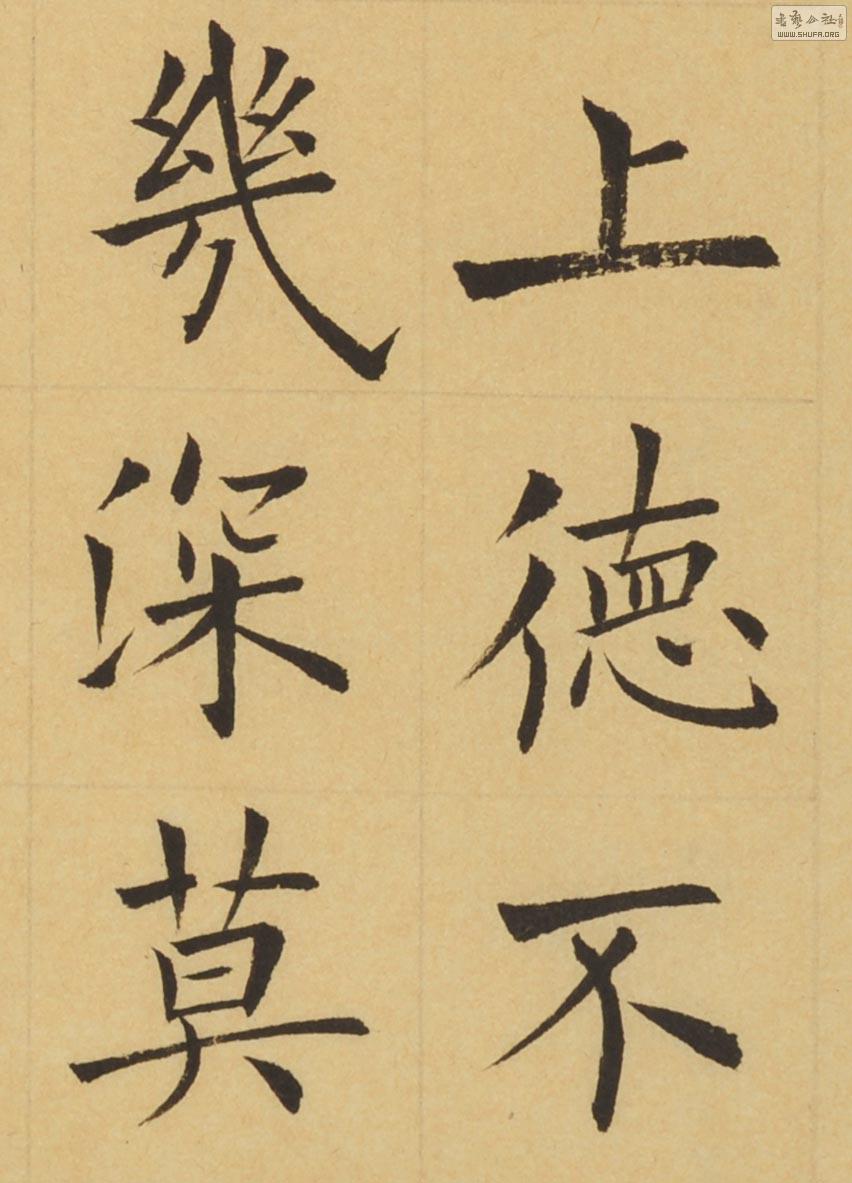 上德不
幾深莫
書藝公社
WWW.SHUFA.ORG